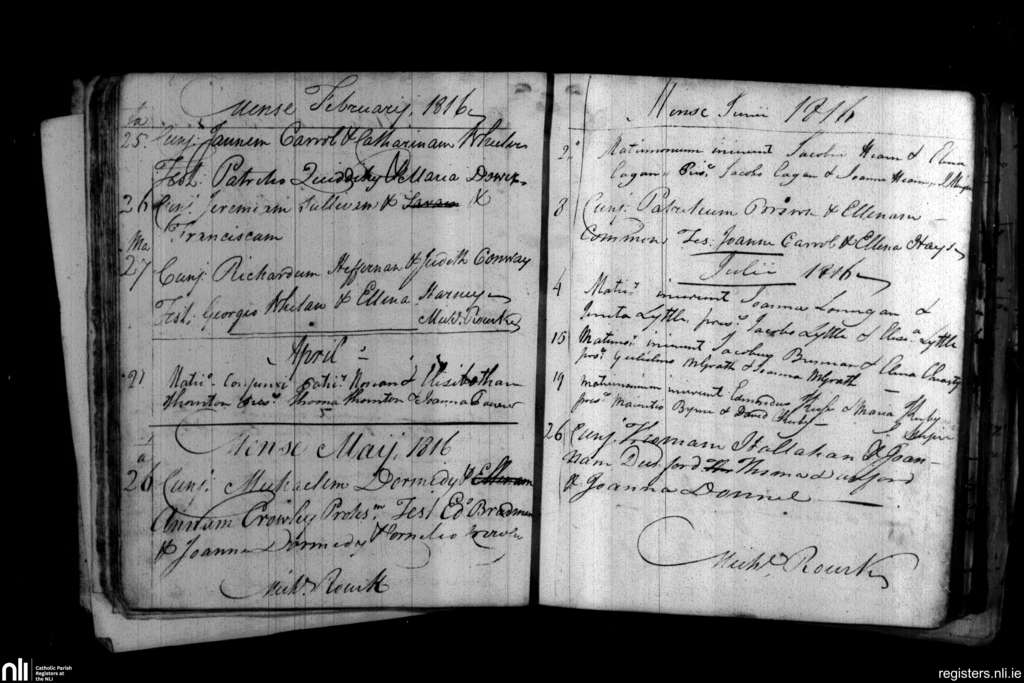 Mense Februarij, 1816
25. Cunj. Jaunem Carrol & Catharinam Whelan
Test. Patritio Quiddihy & Maria Dwer
26 Cunj. Jeremiam Sullivan & &
Franciscam
Ma
27 Cunj. Richardum Heffernan & Judith Conway
Test. Georgio Whelan & Ellena Harney
Michl. Rourke
April
21 Matr. Conjunxi Patr. Honan & Elisibetham
Thornton pres. Thoma Thornton & Joanna
Mense Maij, 1816
a
26 Cunj. Michaelem Dormedy & Ellenam
Annam Crowley Protes. Test Ed. Bradman
& Joanna Dormedy & Cornelio
Michl. Rourk
Mense Junii 1816
2. Matrimonium inierunt Jacobus Hearn & Elena
Eagan Pres. Jacobo Eagan & Joanna Hearn
8 Cunj. Patricium Brown & Ellenam
Common Tes. Joanne Carrol & Ellena Hays
Julii 1816
4 Matr. inierunt Joannes Lonigan &
Lyttle, pres. Jacobo Lyttle & Elisa Lyttle
15 Matrimo. inierunt Jacobus Brennan & Elena
pres. Gulielmo McGrath & Joanna McGrath
19 Matrimonium inierunt Edmundus & Maria
pres. Mauritio Byrne & David
26 Cunj. Thomam Hallahan & Joan-
nam Dunford Thoma Dunford
& Joanna Donnel
Michl. Rourke
nli
Catholic Parish
Registers at
the NLI
registers.nli.ie